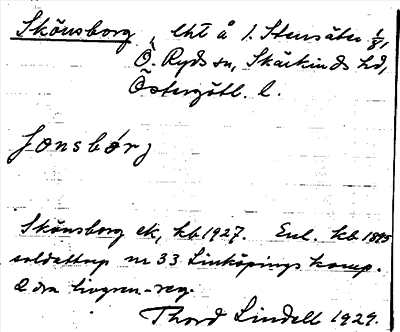 Skönsborg, lht å 1. Stensäter 1/8,
Ö. Ryds sn, Skärkinds hd,
Östergötl. l.
Skönsborg ek, kb 1927. Enl. kb 1895
soldattorp nr 33 Linköpings komp.
2 dra livgren-reg.
Thord Lindell 1929.